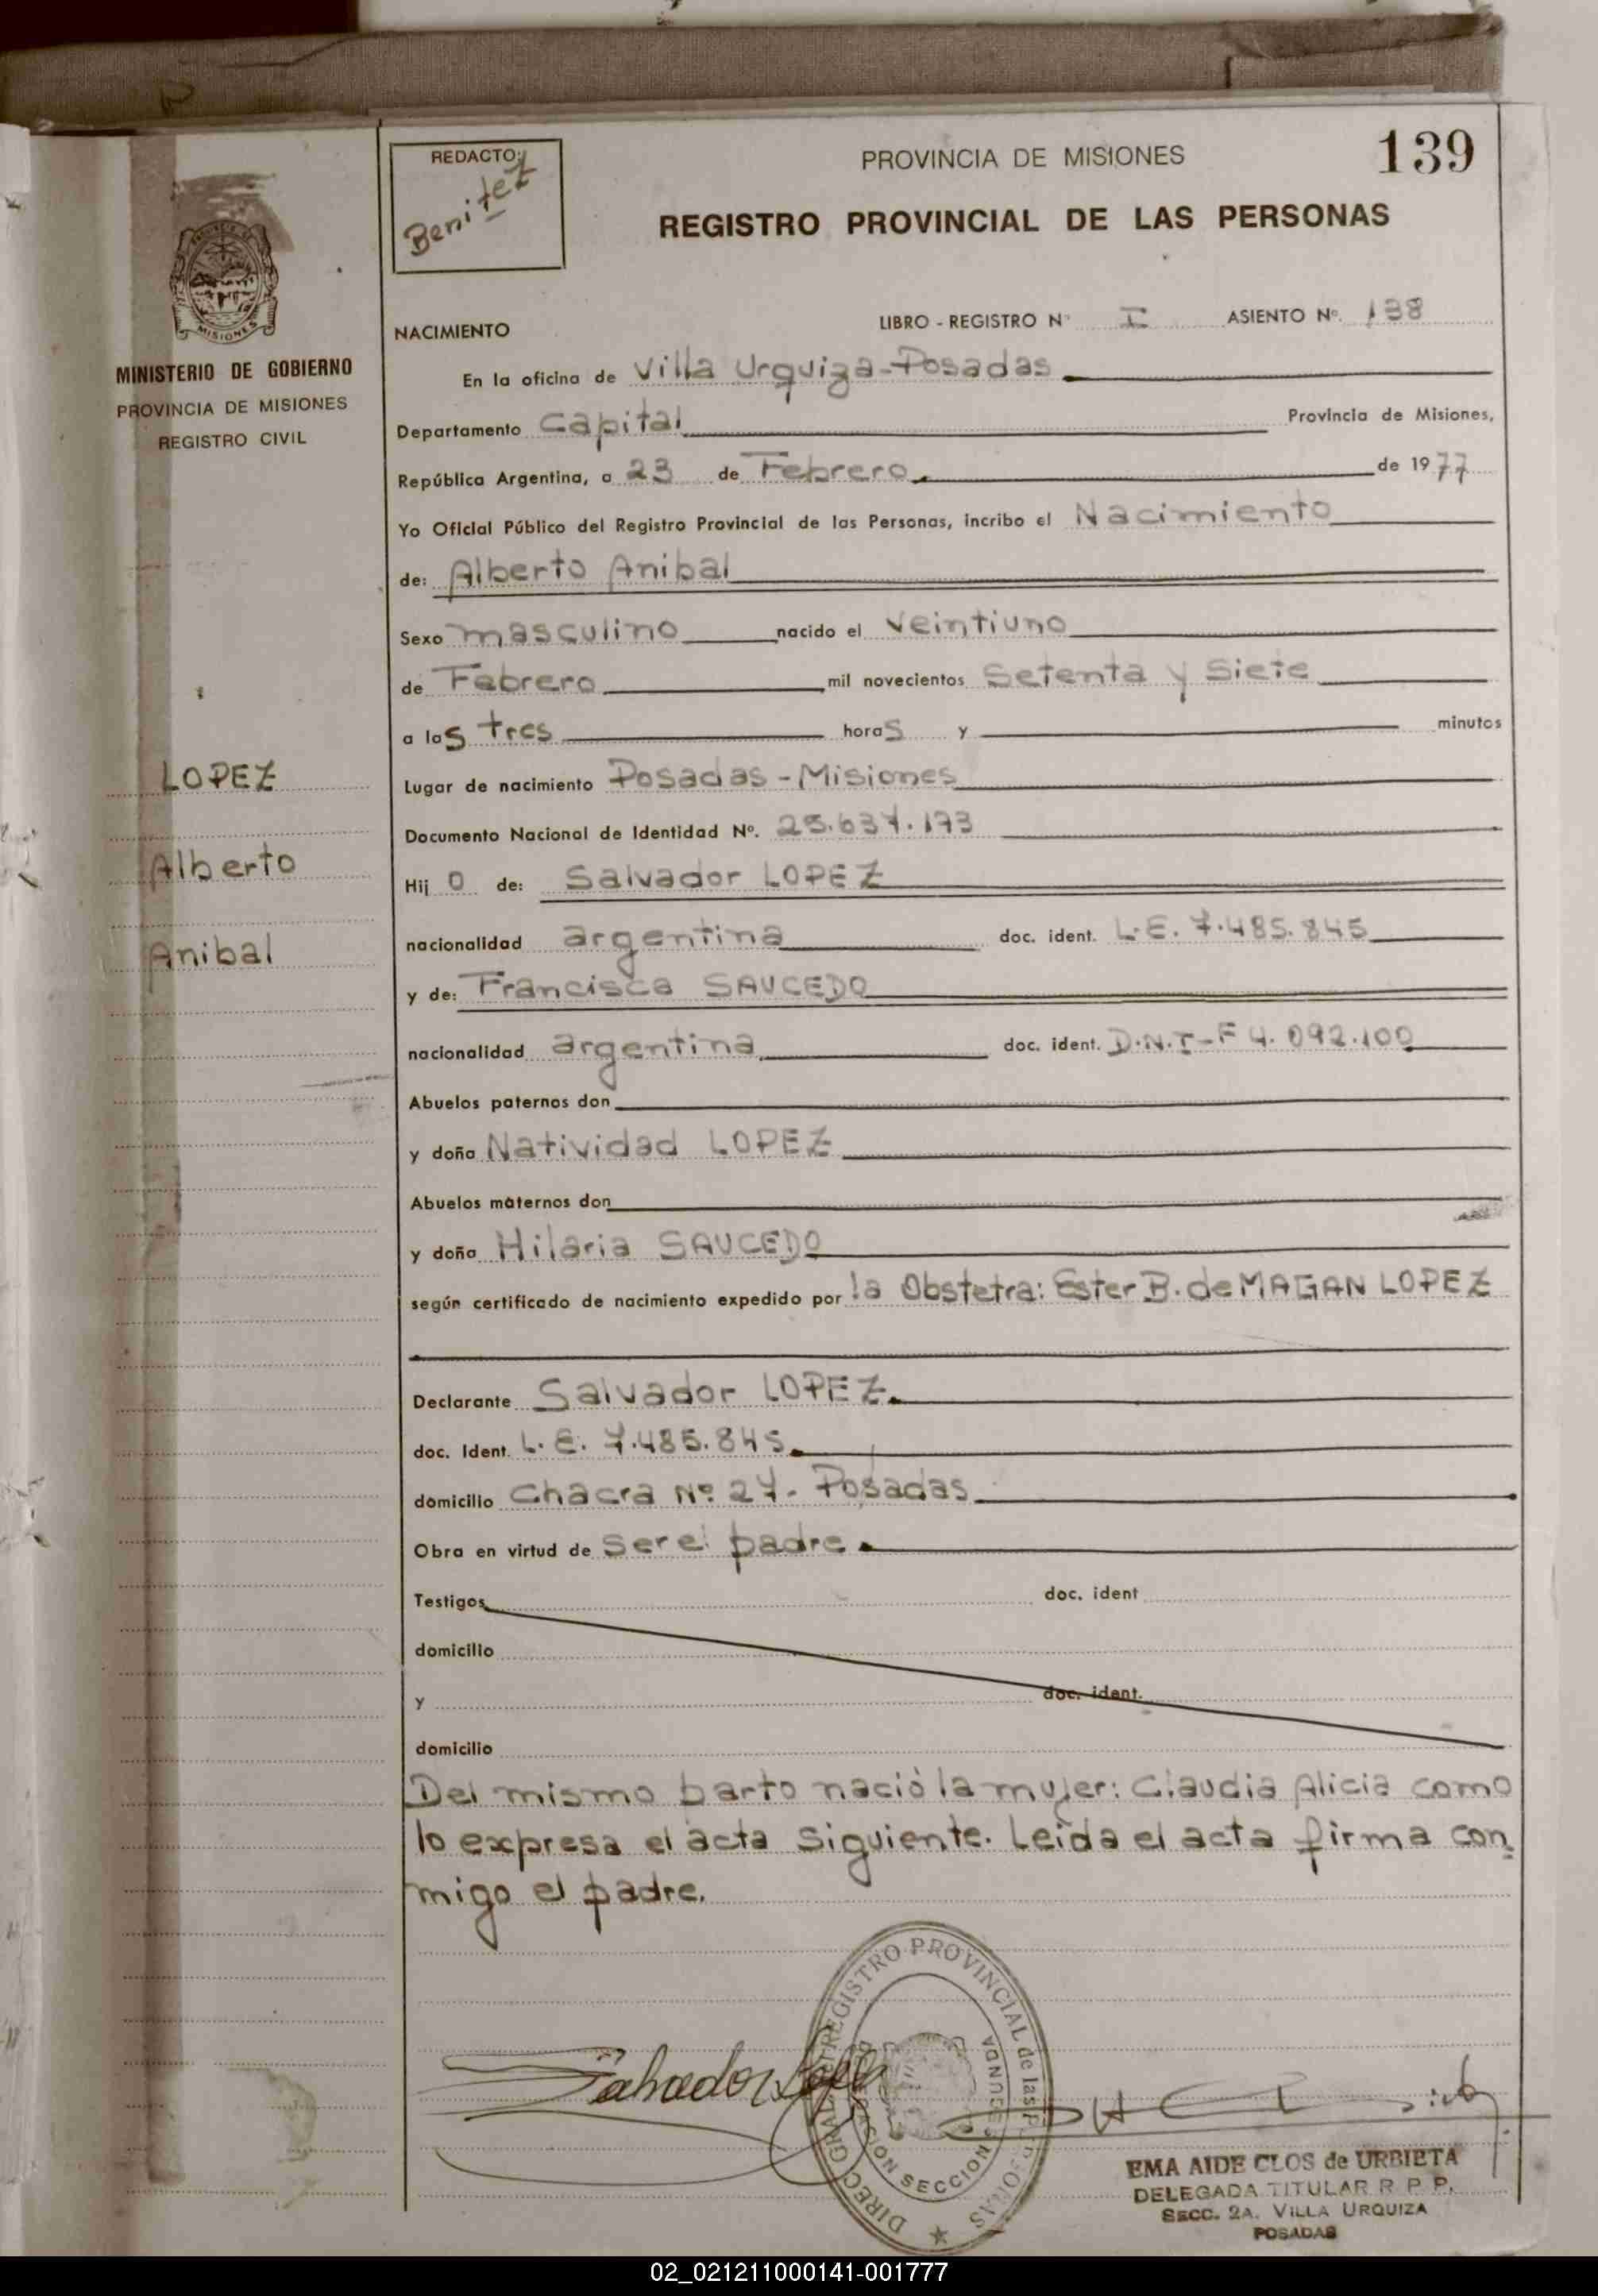 REDACTO:
Benitez
PROVINCIA DE MISIONES
139
REGISTRO PROVINCIAL DE LAS PERSONAS
MISIONES
MINISTERIO DE GOBIERNO
PROVINCIA DE MISIONES
REGISTRO CIVIL
LOPEZ
Alberto
Anibal
NACIMIENTO
LIBRO - REGISTRO Nº I ASIENTO Nº. 138
En la oficina de Villa Urquiza-Posadas
Departamento Capital Provincia de Misiones,
República Argentina, a 23 de Febrero de 1977
Yo Oficial Público del Registro Provincial de las Personas, incribo el Nacimiento
de: Alberto Anibal
Sexo masculino nacido el veintiuno
de Febrero mil novecientos Setenta y Siete
a las tres horas y minutos
Lugar de nacimiento Posadas - Misiones
Documento Nacional de Identidad Nº. 25.637.173
Hij o de: Salvador LOPEZ
nacionalidad argentina doc. ident. L.E. 7.485.845
y de: Francisca SAUCEDO
nacionalidad argentina doc. ident. D.N.I-F 4.092.100
Abuelos paternos don
y doña Natividad LOPEZ
Abuelos maternos don
y doña Hilaria SAUCEDO
según certificado de nacimiento expedido por la Obstetra: Ester B. de MAGAN LOPEZ
Declarante Salvador LOPEZ.
doc. Ident. L. E. 7.485.845.
domicilio Chacra Nº 27 - Posadas
Obra en virtud de ser el padre.
Testigos doc. ident
domicilio
y doc. ident.
domicilio
Del mismo parto nació la mujer: Claudia Alicia como
lo expresa el acta siguiente. Leída el acta firma con
migo el padre.
Salvador Lopez
DIREC. GRAL. del REGISTRO PROVINCIAL de las PERSONAS
SECCION SEGUNDA
EMA AIDE CLOS de URBIETA
DELEGADA TITULAR R P P.
SECC. 2A. VILLA URQUIZA
POSADAS
02_021211000141-001777